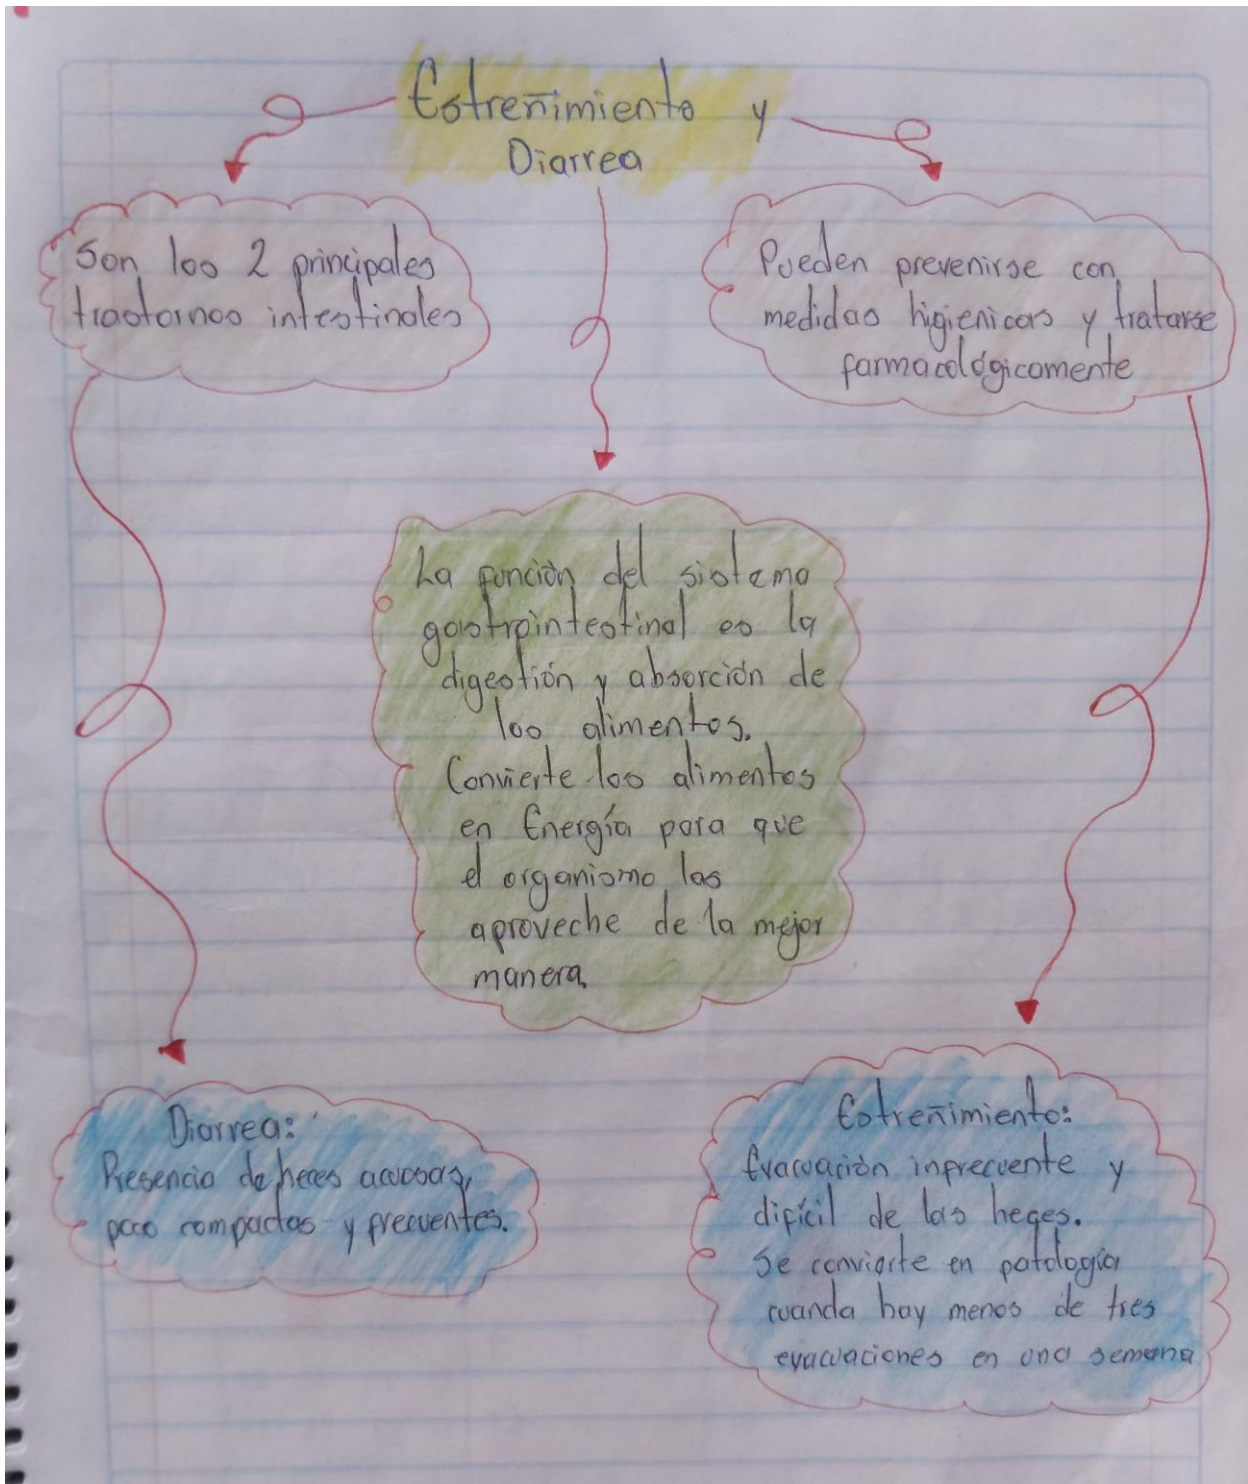 Estreñimiento y
Diarrea
Son los 2 principales
trastornos intestinales
Pueden prevenirse con
medidas higienicas y tratarse
farmacológicamente
La función del sistema
gastrointestinal es la
digestión y absorción de
los alimentos.
Convierte los alimentos
en Energía para que
el organismo las
aproveche de la mejor
manera.
Diarrea:
Presencia de heces acuosas,
poco compactas y frecuentes.
Estreñimiento:
Evacuación infrecuente y
difícil de las heges.
Se convierte en patología
cuanda hay menos de tres
evacuaciones en una semana